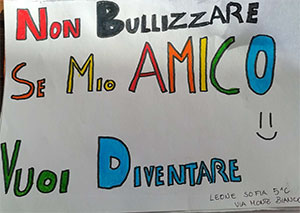 NON BULLIZZARE
SE MIO AMICO
VUOI DIVENTARE
LEONE SOFIA 5^C
VIA MONTE BIANCO